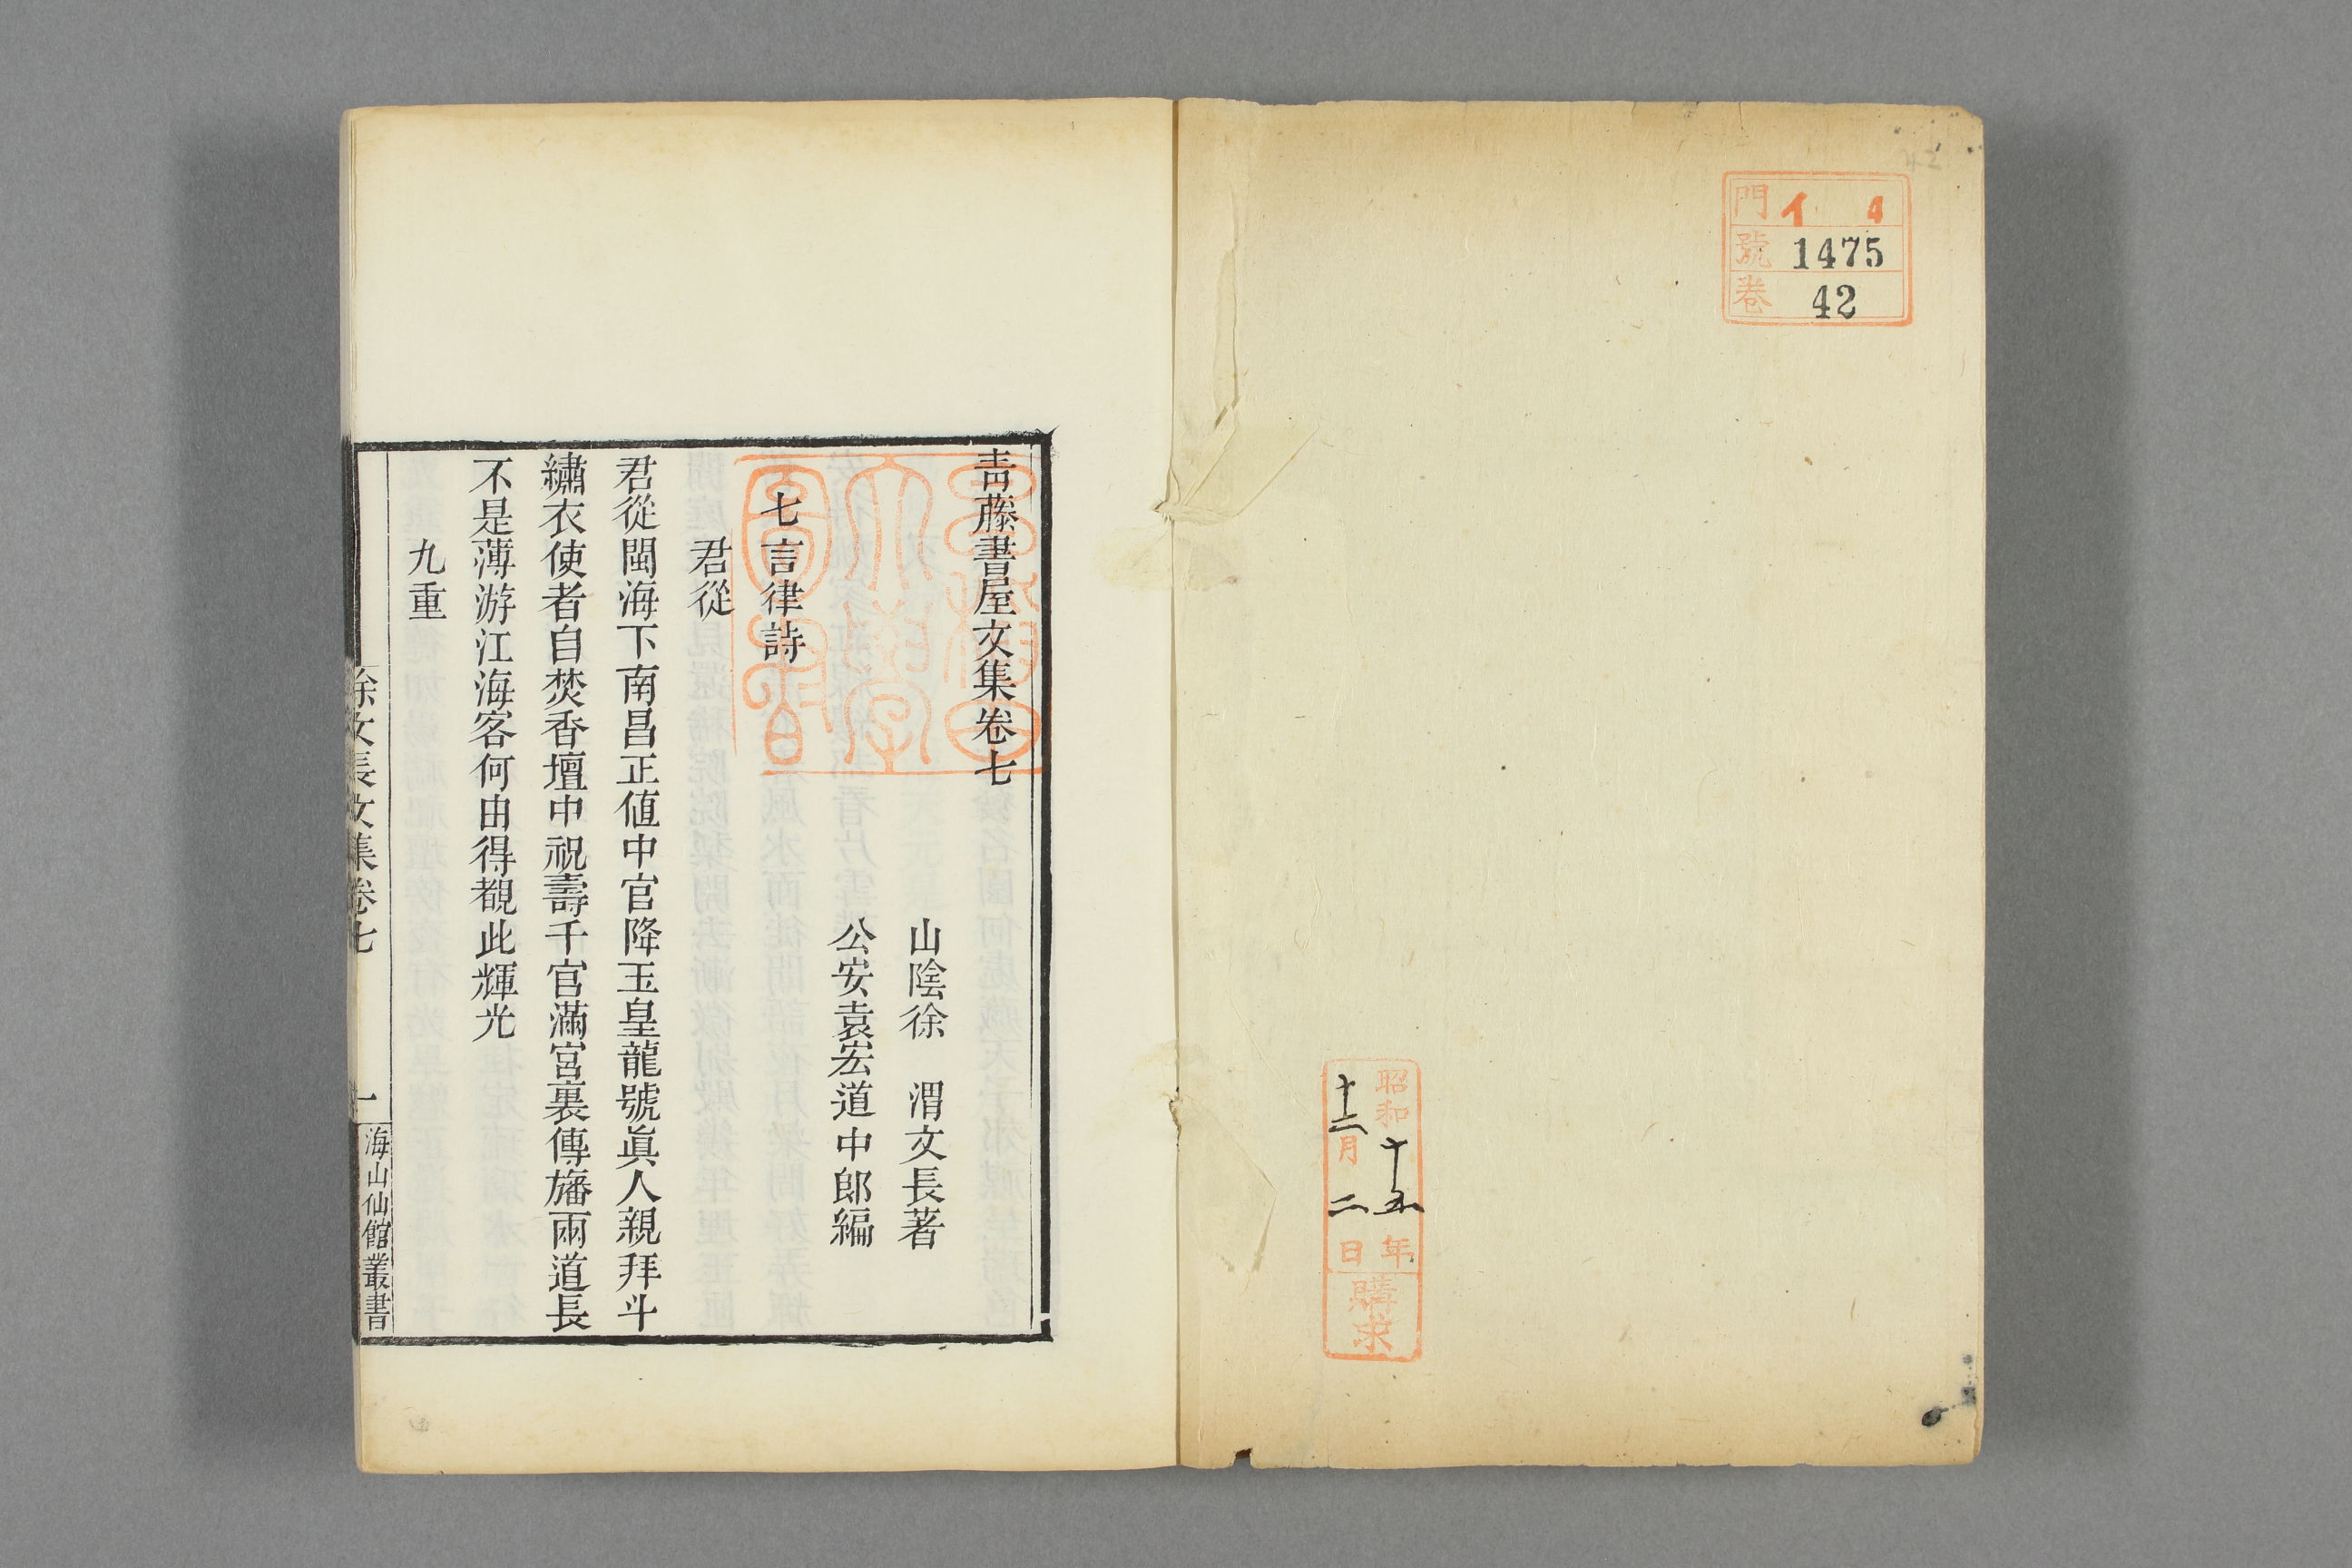 門 イ 4
號 1475
卷 42
昭和十五年
十二月二日
購求
靑藤書屋文集卷七
山陰徐　渭文長著
公安袁宏道中郎編
七言律詩
君從
君從閩海下南昌正值中官降玉皇龍號眞人親拜斗
繡衣使者自焚香壇中祝壽千官滿宮裏傳旛兩道長
不是薄游江海客何由得覩此輝光
九重
徐文長文集卷七
一
海山仙館叢書